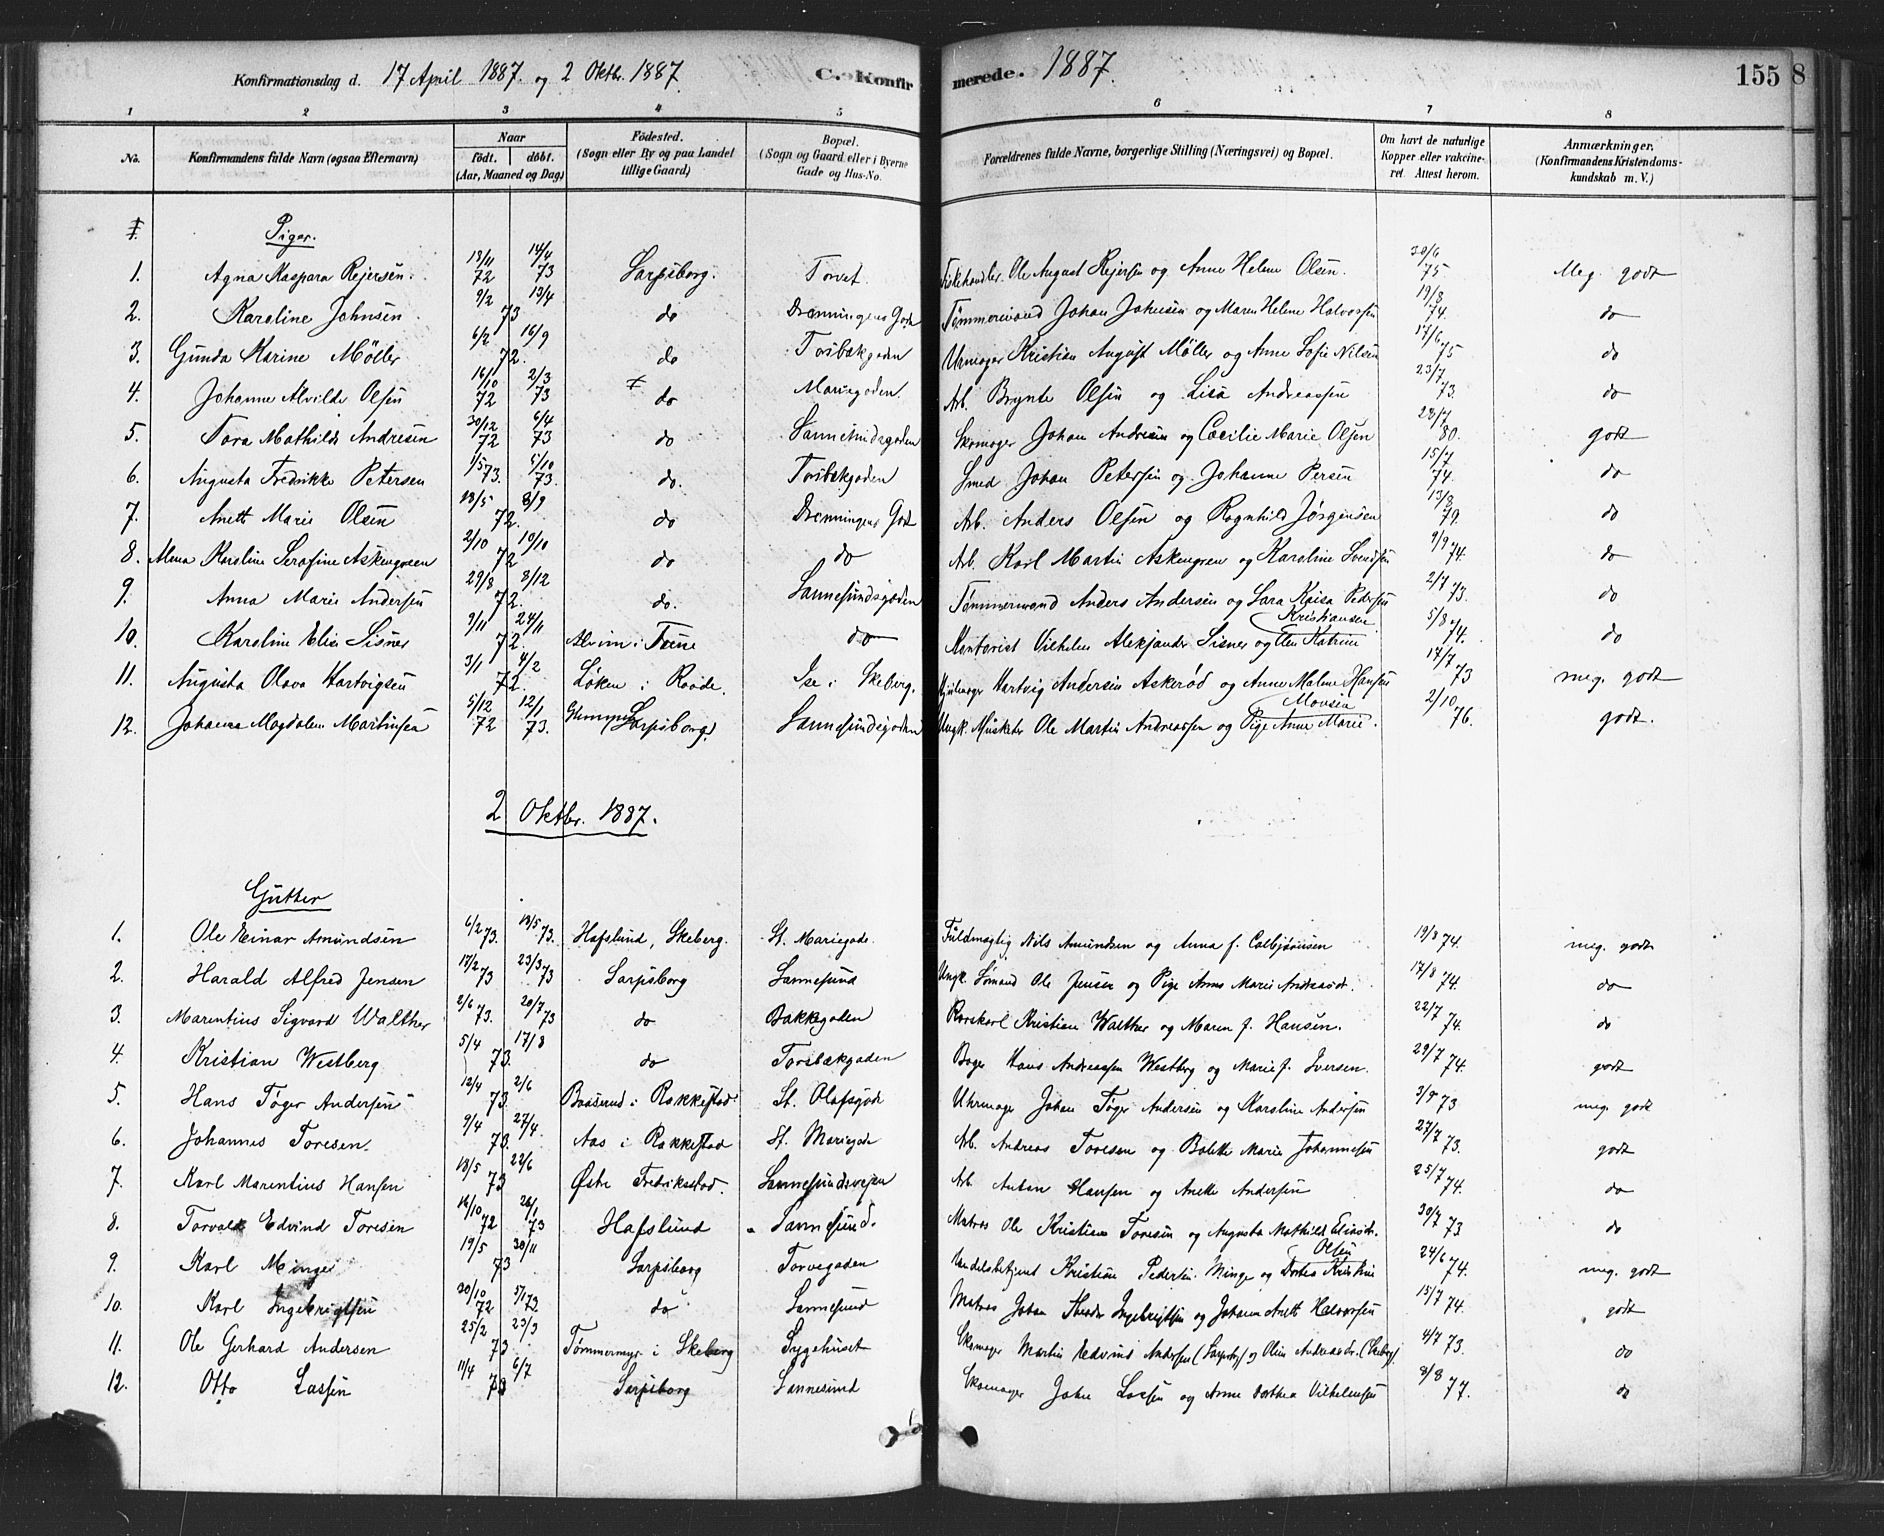 Konfirmationsdag d. 17 April 1887. og 2 Oktbr. 1887. C. Konfir
merede. 1887. 155 8
1 2 3 4 5 6 7 8
No. Konfirmandens fulde Navn (ogsaa Efternavn) Naar født. døbt. (Aar, Maaned og Dag) Fødested. (Sogn eller By og paa Landet tillige Gaard) Bopæl. (Sogn og Gaard eller i Byerne Gade og Hus-No. Forældrenes fulde Navne, borgerlige Stilling (Næringsvei) og Bopæl. Om havt de naturlige Kopper eller vakcineret. Attest herom. Anmærkninger. (Konfirmandens Kristendomskundskab m. V.)
Piger.
1. Agna Kaspara Rejersen. 13/11 72 14/4 73 Sarpsborg. Torvet Fiskehandler Ole August Rejersen og Anne Helene Olsen. 30/6 75 Meg. godt
2. Karoline Johnsen 9/2 13/4 73 do Dronningens Gade Tømmermand Johan Johnsen og Maren Helene Halvorsen 19/8 74. do
3. Gunda Karine Møller 6/2 16/9 72. do Torsbækgaden Urmager Kristian August Møller og Anne Sofie Nilsen 17/6 75 do
4. Johanne Alvilde Olsen 16/10 72 2/3 73 do Mariegaden. Arb. Brynte Olsen og Lisa Andreassen 23/7 73. do
5. Tora Mathilde Andresen 30/12 72 6/4 73 do Sannesundsgaden Skomager Johan Andresen og Cæcilie Marie Olsen 28/7 80. godt
6. Augusta Fredrikke Petersen 1/5 73. 5/10 73. do. Torsbækgaden Smed Johan Petersen og Johanne Persen 15/7 74. do
7. Anett Marie Olsen 18/5 8/9 72. do Dronningens Gade Arb. Anders Olsen og Ragnhild Jørgensen 13/8 79. do
8. Alma Karoline Serafine Askengreen 2/10 19/10 72 do do Arb. Karl Martin Askengreen og Karoline Svendsen 9/9 74. do
9. Anna Marie Andersen 29/8 8/12 72. do. Sannesundsgaden Tømmermand Anders Andersen og Sara Kaisa Pedersen 2/7 73. do
10. Karoline Elise Sisner 9/11 24/11 72. Alvim i Tune do Kontorist Vilhelm Aleksander Sisner og Elen Katrine Kristiansen 5/8 74. do
11. Augusta Olava Hartvigsen 3/1 4/2 72. Løken i Raade. Ise i Skeberg. Hjulmager Hartvig Andersen Askerød og Anne Malene Hansen 17/7 73 meg. godt
12. Johanna Magdalene Martinsen 5/12 72 12/1 73. Sarpsborg. Sannesundsgaden Ungk. Musketer Ole Martin Andreassen og Pige Anne Marie 2/10 76. godt.
2 Oktbr. 1887.
Gutter
1. Ole Einar Amundsen 6/2 73. 18/5 73. Hafslund, Skeberg. St. Mariegade. Fuldmægtig Nils Amundsen og Anna f. Colbjørnsen 19/8 74. meg. godt
2. Harald Alfred Jensen 17/2 73 23/3 73 Sarpsborg Sannesund Ungk. Sømand Ole Jensen og Pige Anne Marie Andreasdr. 17/8 74. do
3. Marentius Sigvard Walther 2/6 73. 20/7 73 do Bakkegaden Karl Kristian Walther og Maren f. Hansen. 22/7 74. do
4. Kristian Westberg 5/4 17/8 73. do Torsbækgaden Bager Hans Andreassen Westberg og Marie f. Iversen. 29/7 74. godt
5. Hans Tøger Andersen 12/4 2/6 73. i Rakkestad St. Olafsgade Uhrmager Johan Tøger Andersen og Karoline Andersen 3/9 73 meg. godt
6. Johannes Toresen. 9/4 27/4. 73. Aas i Rakkestad St. Mariegade Arb. Andreas Toresen og Bolette Marie Johannesen 27/7 73. godt
7. Karl Marentius Hansen 18/5 22/6 73 Østre Fredrikstad. Sannesundsvejen Arb. Anton Hansen og Anette Andersen 25/7 74. do
8. Torvald Edvind Toresen 16/10 72 26/1 73 Hafslund Sannesund. Matros Ole Kristian Toresen og Augusta Mathilde Eliasdr. 30/7 73 do
9. Karl Minge 19/5 30/11 73 Sarpsborg Torvegaden Handelsbetjent Kristian Pedersen Minge og Dortea Kristine Olsen 24/6 74. meg. godt
10. Karl Ingebrigtsen 20/10 72 5/1 73. do Sannesund Matros Johan Theodor Ingebrigtsen og Johanne Anett Halvorsen 15/7 74. godt
11. Ole Gerhard Andersen 25/2 23/3 73 Tømmermyr i Skeberg Sygehuset Skomager Martin Edvind Andersen (Sarpsbg) og Oline Andreasdr. (Skeberg). 4/7 73. do
12. Otto Lassen 11/4 6/7 73 Sarpsborg Sannesund Skomager John Lassen og Anne Dorthea Vilhelmsen 8/8 77. do